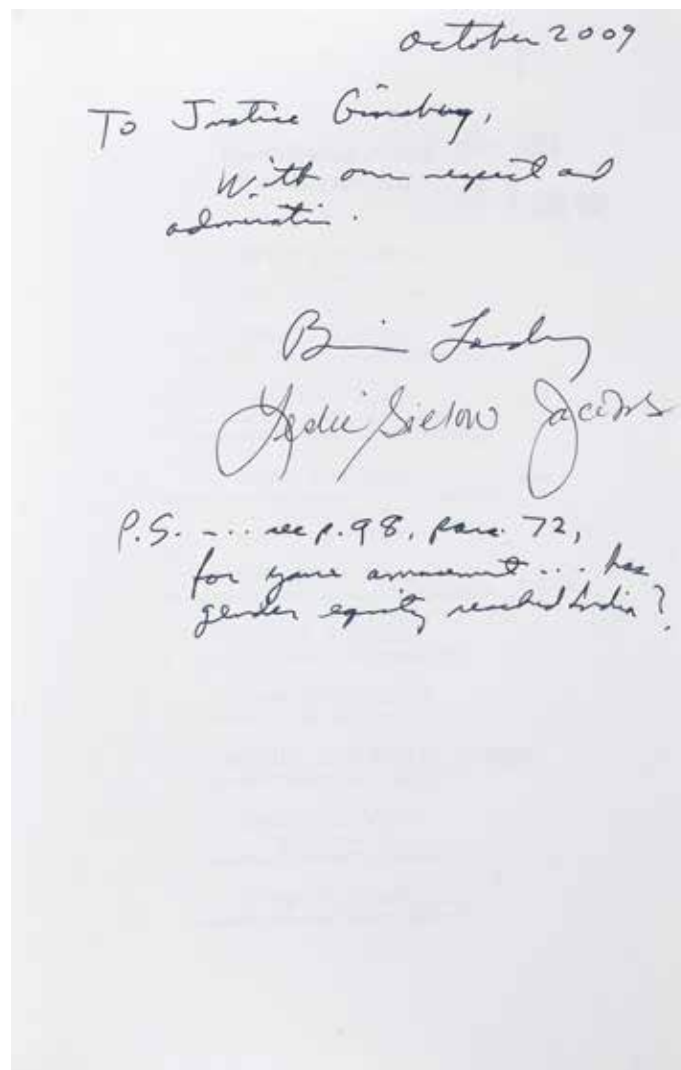 October 2009
To Justice Ginsburg,
With our respect and
admiration.
Brian Landsberg
Leslie Gielow Jacobs
P.S. -... see p. 98, para. 72,
for your amusement... has
gender equity reached India?